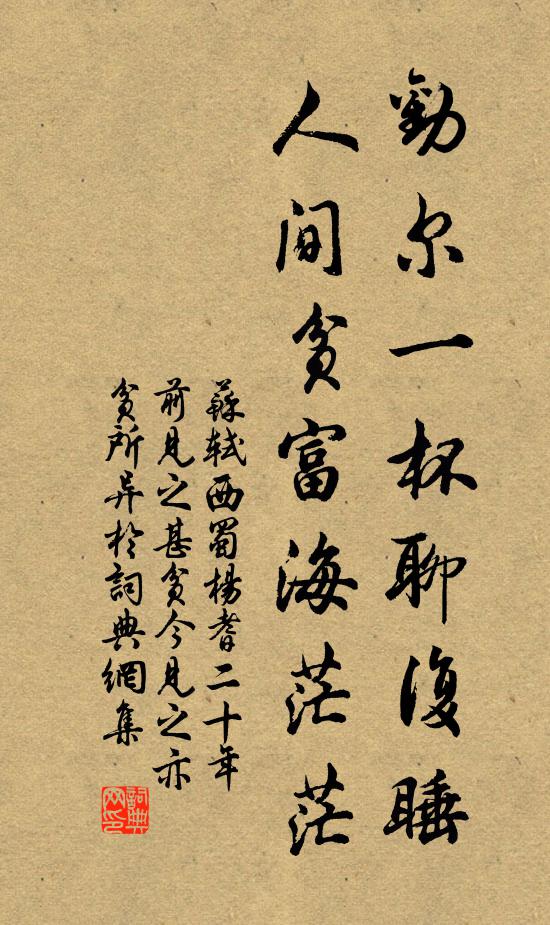 勸尔一杯聊復睡
人间貧富海茫茫
蘇軾西蜀楊耆二十年
前見之甚貧今見之亦
貧所异於詞典網集
詞典
网印